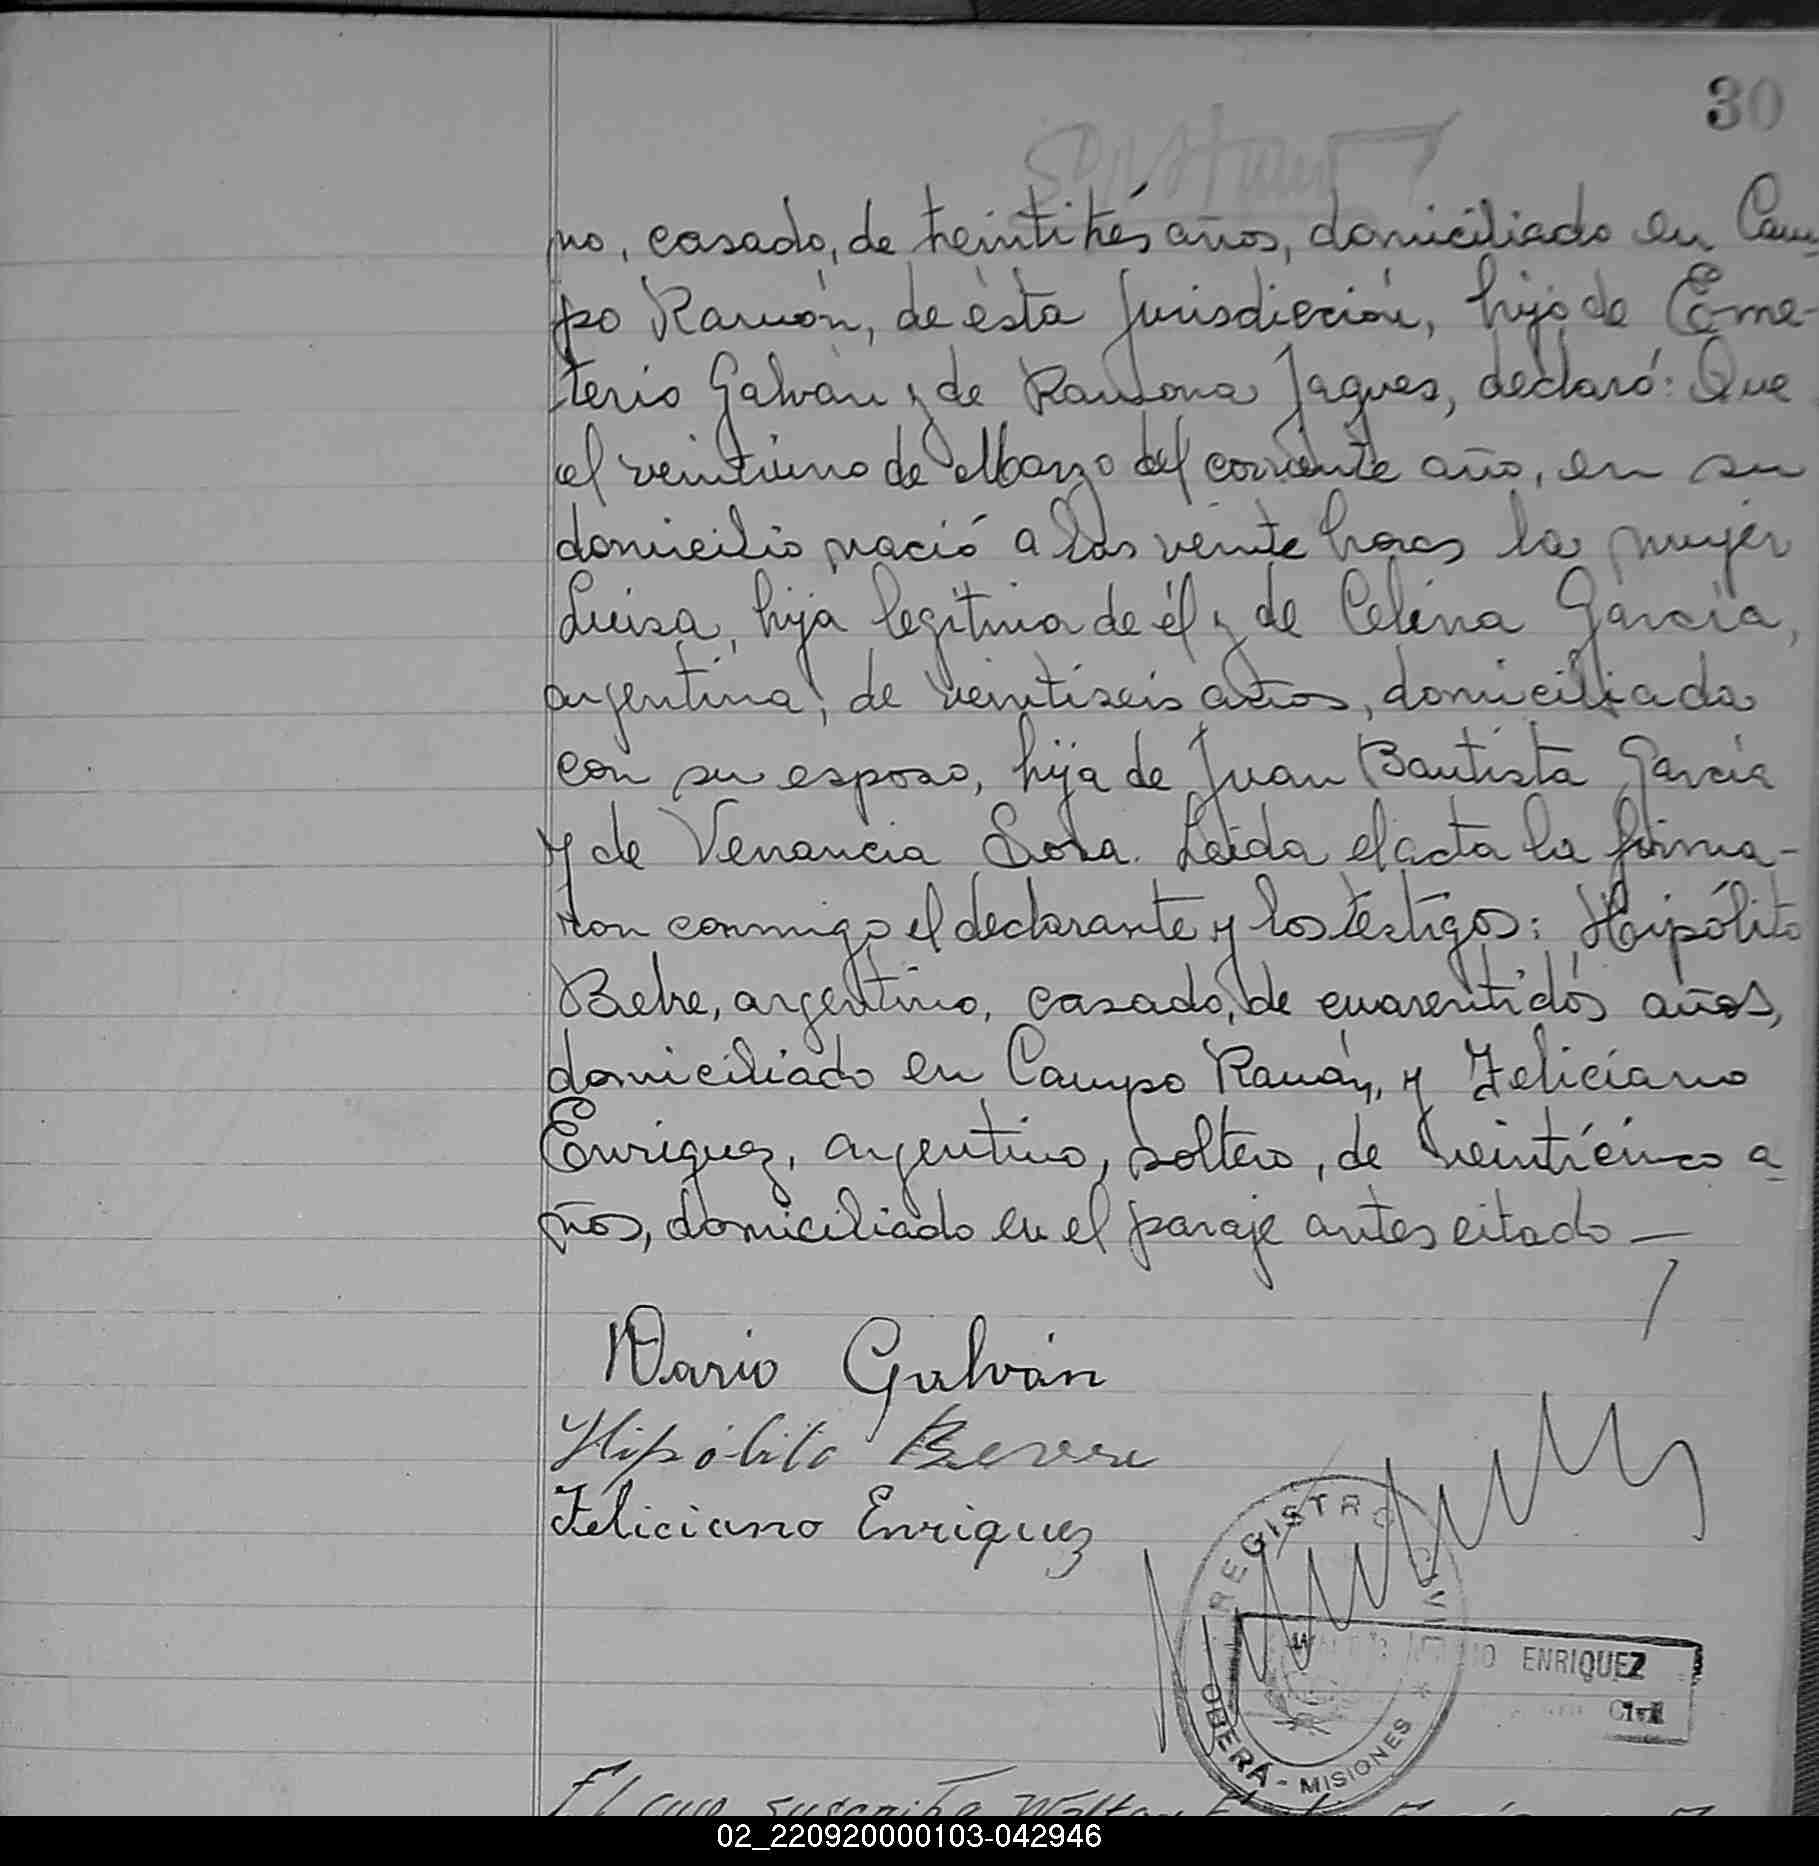 30
no, casado, de treintitrés años, domiciliado en Cam-
po Ramón, de ésta Jurisdicción, hijo de Eme-
terio Galván y de Ramona Jaques, declaró: Que
el veintiuno de Marzo del corriente año, en su
domicilio nació a las veinte horas la mujer
Luisa, hija legítima de él y de Celina García,
argentina, de veintiseis años, domiciliada
con su esposo, hija de Juan Bautista García
y de Venancia Sosa. Leída el acta la firma-
ron conmigo el declarante y los testigos: Hipólito
argentino, casado, de cuarentidós años,
domiciliado en Campo Ramón, y Feliciano
Enriquez, argentino, soltero, de veinticinco a-
ños, domiciliado en el paraje antes citado —
Dario Galván
Hipólito
Feliciano Enriquez
REGISTRO CIVIL
ENRIQUEZ
Civil
OBERÁ - MISIONES *
El que suscribe
02_220920000103-042946